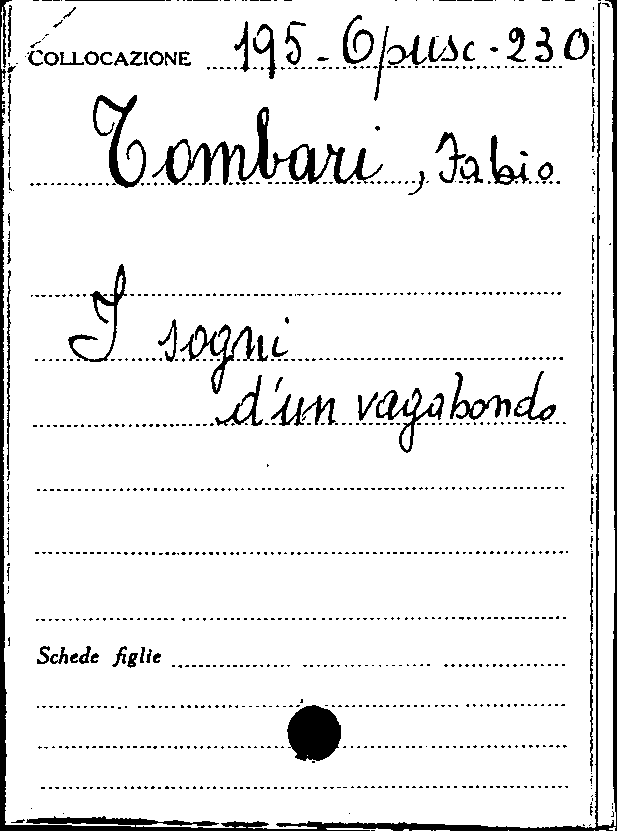 COLLOCAZIONE 195-Opusc-230
Tombari, Fabio
I sogni
d'un vagabondo
Schede figlie